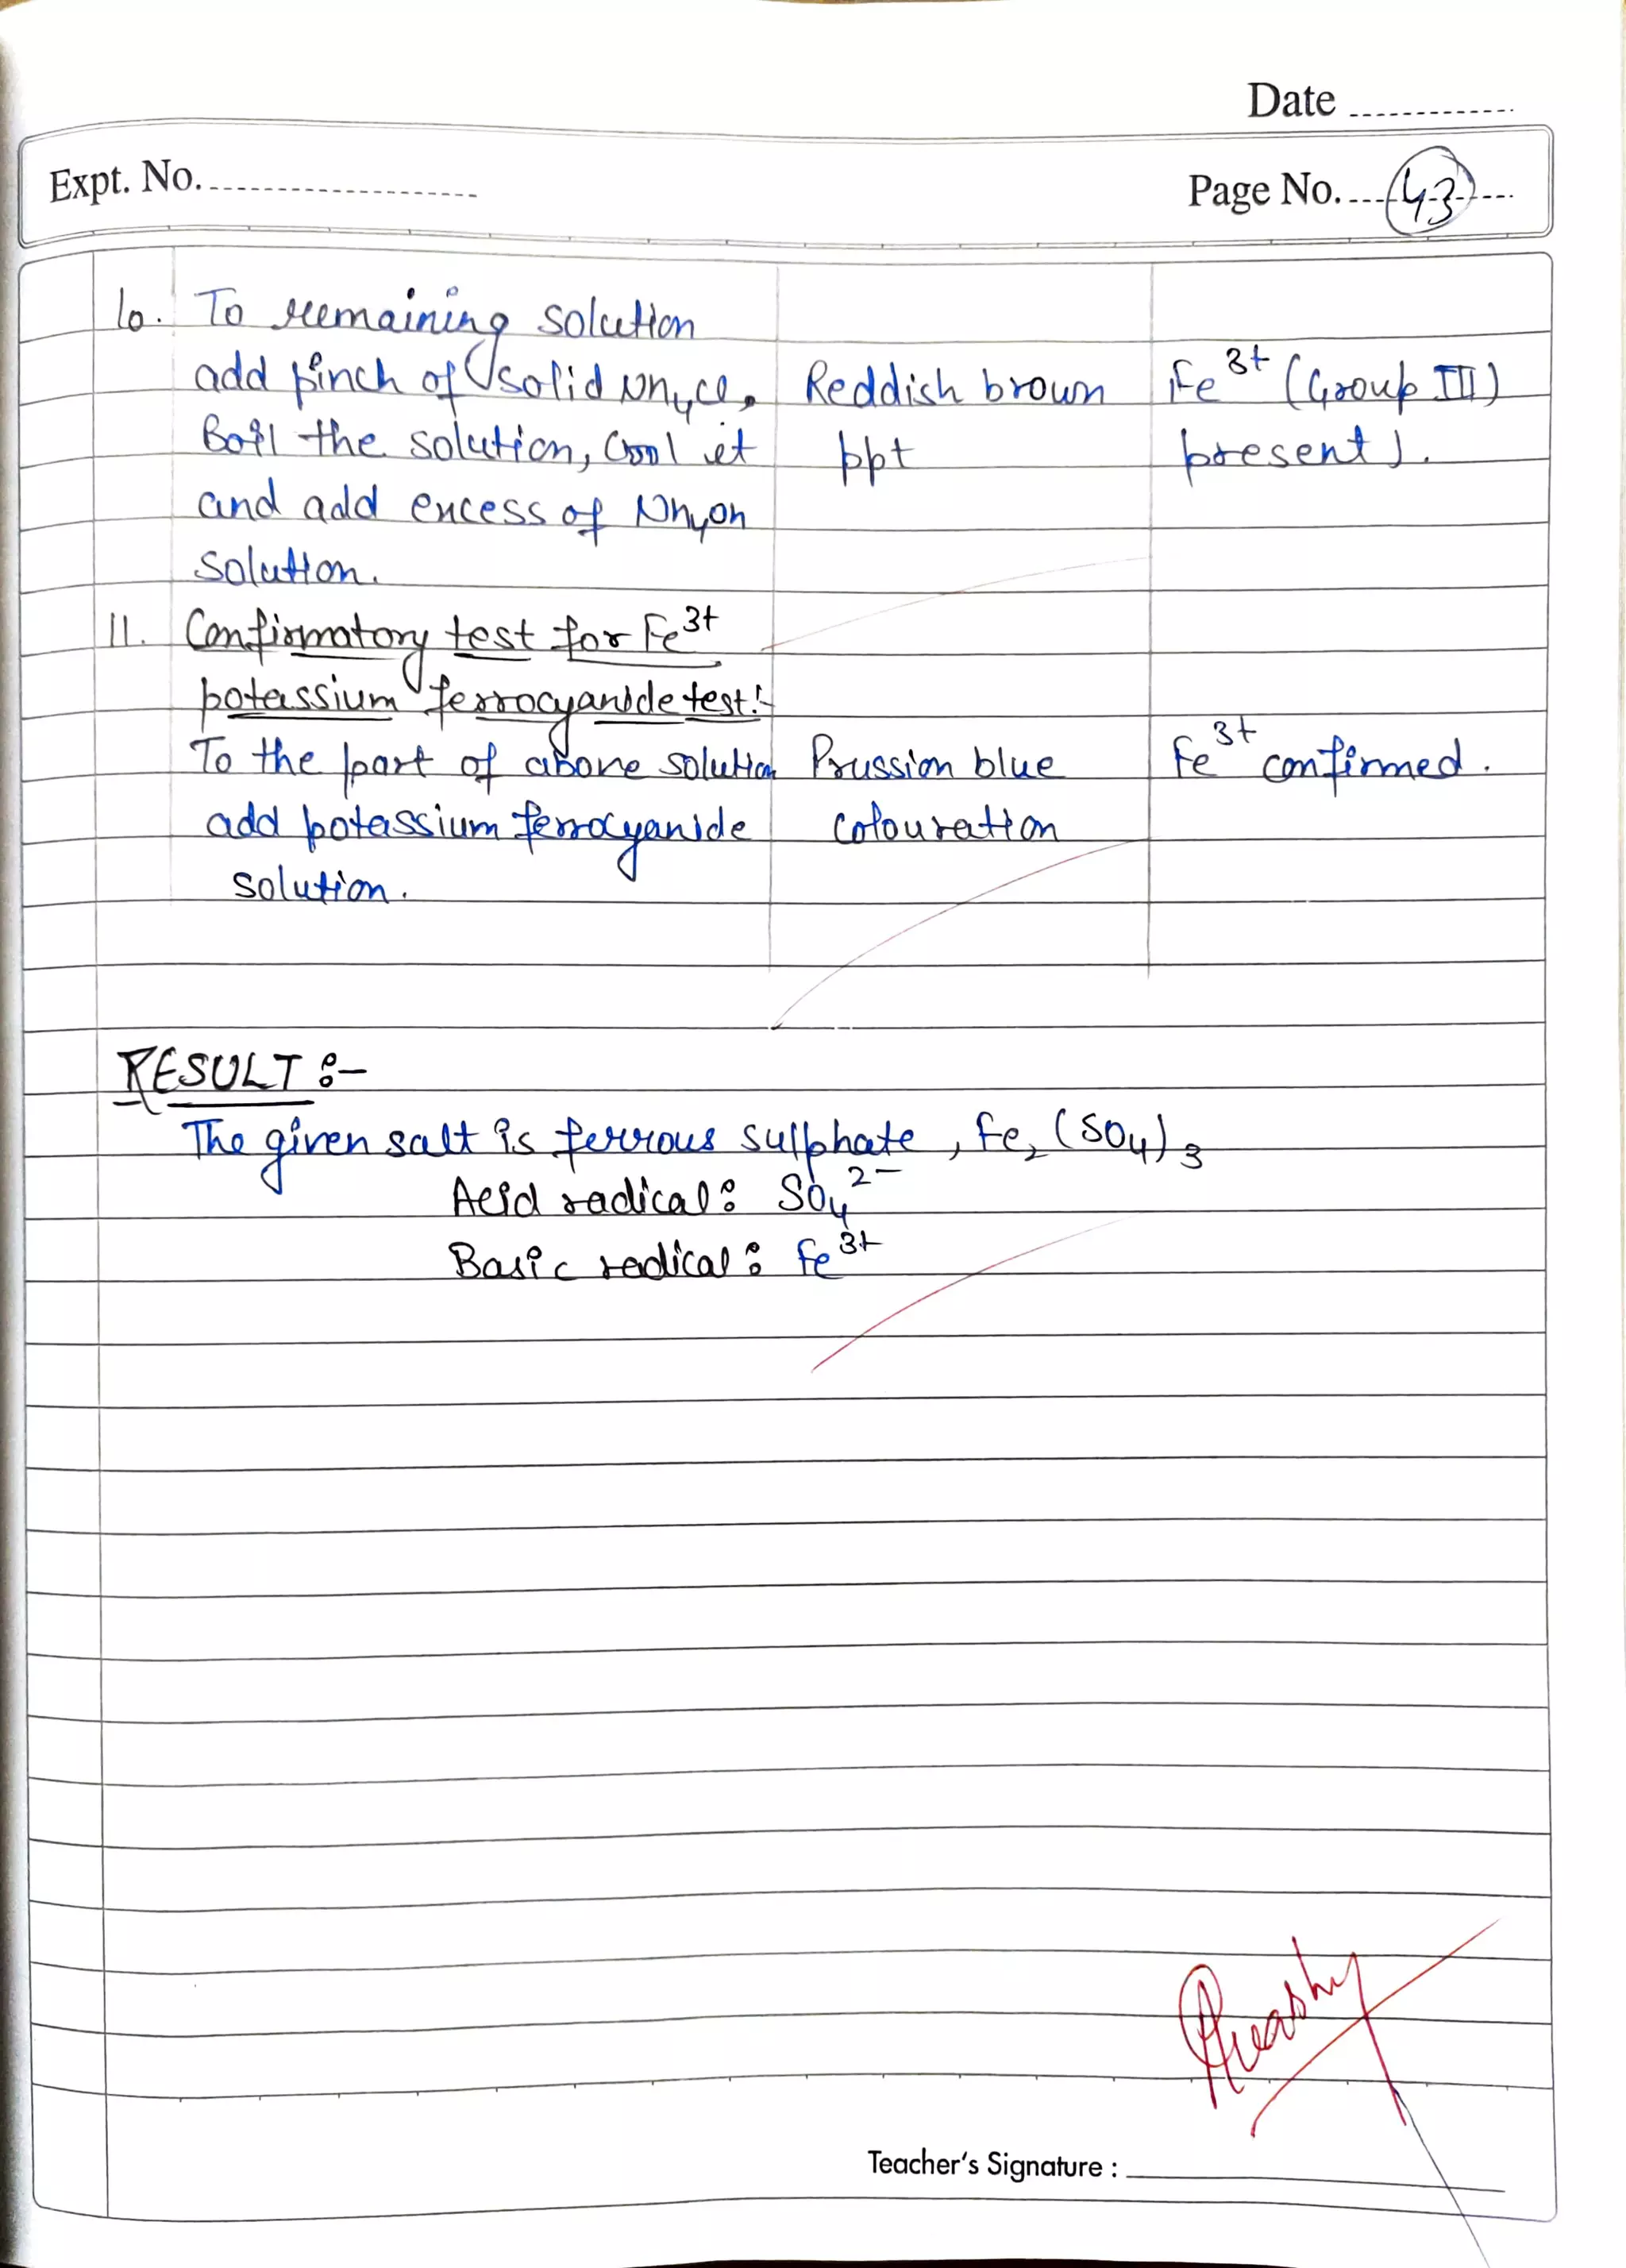 Date
Expt. No.
Page No. 43
10. To remaining solution
add pinch of solid NH4Cl. Reddish brown Fe3+ (Group III)
Boil the solution, Cool it ppt present).
and add excess of NH4OH
solution.
11. Confirmatory test for Fe3+
potassium ferrocyanide test:-
To the part of above solution Prussion blue Fe3+ confirmed.
add potassium ferrocyanide colouration
solution.
RESULT :-
The given salt is ferrous sulphate, Fe2(SO4)3
Acid radical: SO4 2-
Basic radical: Fe3+
Teacher's Signature :